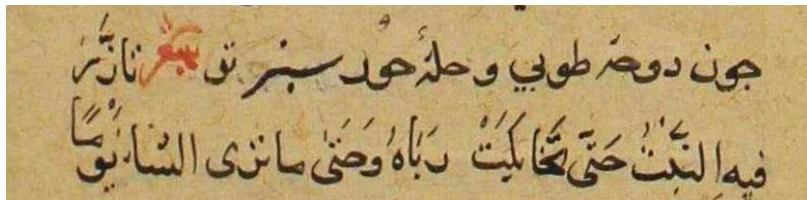 جون دوحهٔ طوبي و حلهٔ حور سبز تو شعر تازَّرَ
فيهِ النَّبْتُ حَتَّى تَخَايَلَتْ رَبَاهُ وَحَتَّى ما ترى الشاءَ نُوَّمًا